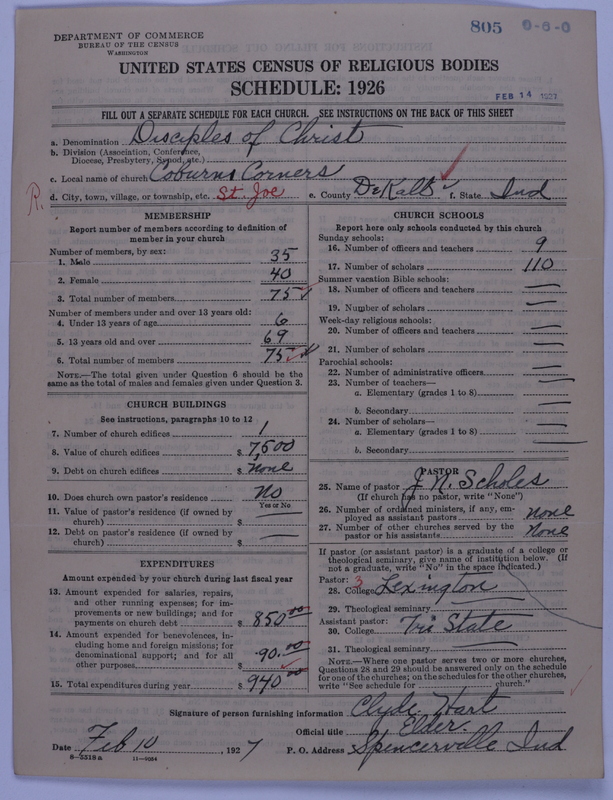 805 0-6-0
DEPARTMENT OF COMMERCE
BUREAU OF THE CENSUS
WASHINGTON
UNITED STATES CENSUS OF RELIGIOUS BODIES
SCHEDULE: 1926
FEB 14 1927
FILL OUT A SEPARATE SCHEDULE FOR EACH CHURCH. SEE INSTRUCTIONS ON THE BACK OF THIS SHEET
a. Denomination Disciples of Christ
b. Division (Association, Conference, Diocese, Presbytery, Synod, etc.)
c. Local name of church Coburns Corners
R. d. City, town, village, or township, etc. St. Joe e. County DeKalb f. State Ind
MEMBERSHIP
Report number of members according to definition of
member in your church
Number of members, by sex:
1. Male 35
2. Female 40
3. Total number of members 75
Number of members under and over 13 years old:
4. Under 13 years of age 6
5. 13 years old and over 69
6. Total number of members 75
NOTE.—The total given under Question 6 should be
same as the total of males and females given under Question 3.
CHURCH BUILDINGS
See instructions, paragraphs 10 to 12
7. Number of church edifices 1
8. Value of church edifices $ 7,500
9. Debt on church edifices $ none
10. Does church own pastor's residence No
Yes or No
11. Value of pastor's residence (if owned by
church) $ —
12. Debt on pastor's residence (if owned by
church) $ —
EXPENDITURES
Amount expended by your church during last fiscal year
13. Amount expended for salaries, repairs,
and other running expenses; for im-
provements or new buildings; and for
payments on church debt $ 850.00
14. Amount expended for benevolences, in-
cluding home and foreign missions; for
denominational support; and for all
other purposes $ 90.00
15. Total expenditures during year $ 940.00
CHURCH SCHOOLS
Report here only schools conducted by this church
Sunday schools:
16. Number of officers and teachers 9
17. Number of scholars 110
Summer vacation Bible schools:
18. Number of officers and teachers —
19. Number of scholars —
Week-day religious schools:
20. Number of officers and teachers —
21. Number of scholars —
Parochial schools:
22. Number of administrative officers —
23. Number of teachers—
a. Elementary (grades 1 to 8) —
b. Secondary —
24. Number of scholars—
a. Elementary (grades 1 to 8) —
b. Secondary —
PASTOR
25. Name of pastor J. N. Scholes
(If church has no pastor, write "None")
26. Number of ordained ministers, if any, em-
ployed as assistant pastors none
27. Number of other churches served by the
pastor or his assistants None
If pastor (or assistant pastor) is a graduate of a college or
theological seminary, give name of institution below. (If
not a graduate, write "No" in the space indicated.)
Pastor: 3
28. College Lexington
29. Theological seminary —
Assistant pastor:
30. College Tri State
31. Theological seminary —
NOTE.—Where one pastor serves two or more churches,
Questions 28 and 29 should be answered only on the schedule
for one of the churches; on the schedules for the other churches,
write "See schedule for church."
Signature of person furnishing information Clyde Hart
Official title Elder.
Date Feb 10, 1927 P. O. Address Spencerville Ind
8-5519a 11-9034